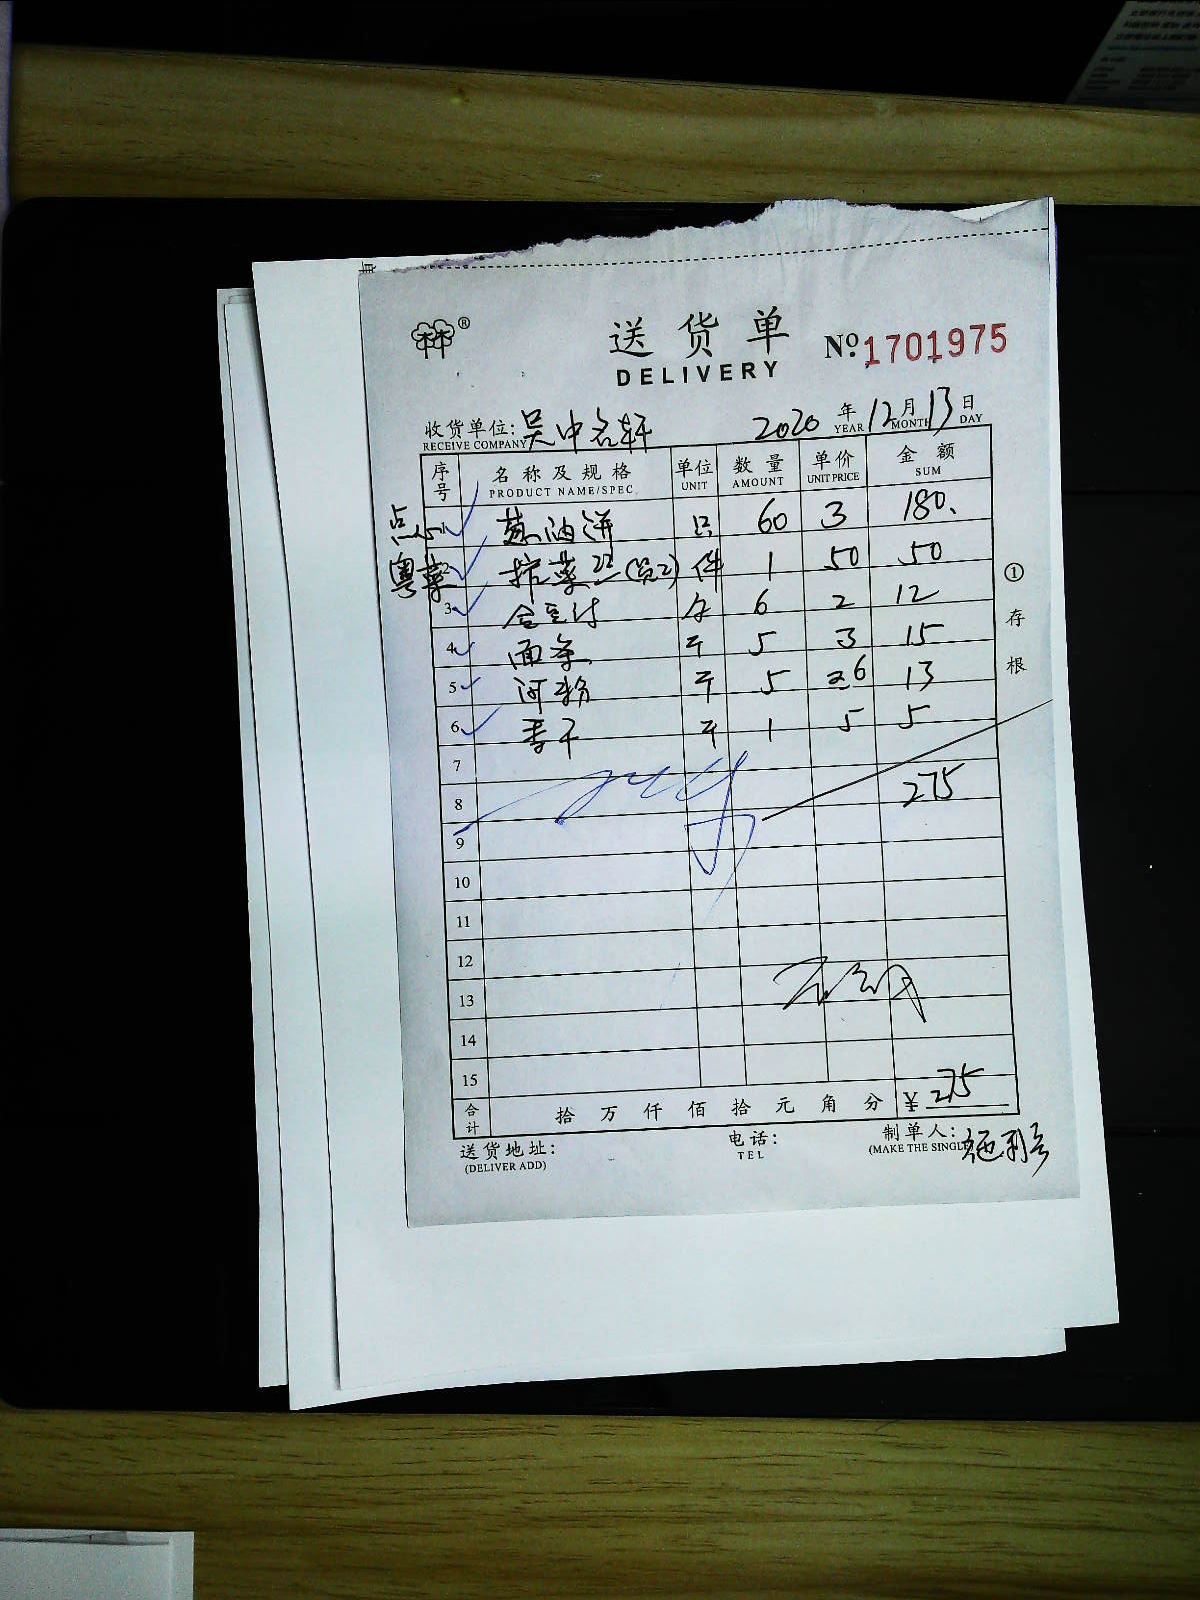 送货单
DELIVERY
№1701975
收货单位: 吴中名轩 2020年12月13日
RECEIVE COMPANY YEAR MONTH DAY
序号 名称及规格 单位 数量 单价 金额
PRODUCT NAME/SPEC UNIT AMOUNT UNIT PRICE SUM
点心 1 葱油饼 只 60 3 180.
粤菜 2 件 1 50 50
3 6 2 12
4 面条 斤 5 3 15
5 河粉 斤 5 2.6 13
6 香干 斤 1 5 5
7
8 275
9
10
11
12
13
14
15
合计 拾 万 仟 佰 拾 元 角 分 ¥ 275
送货地址: 电话: 制单人:
(DELIVER ADD) TEL (MAKE THE SINGL
①存根